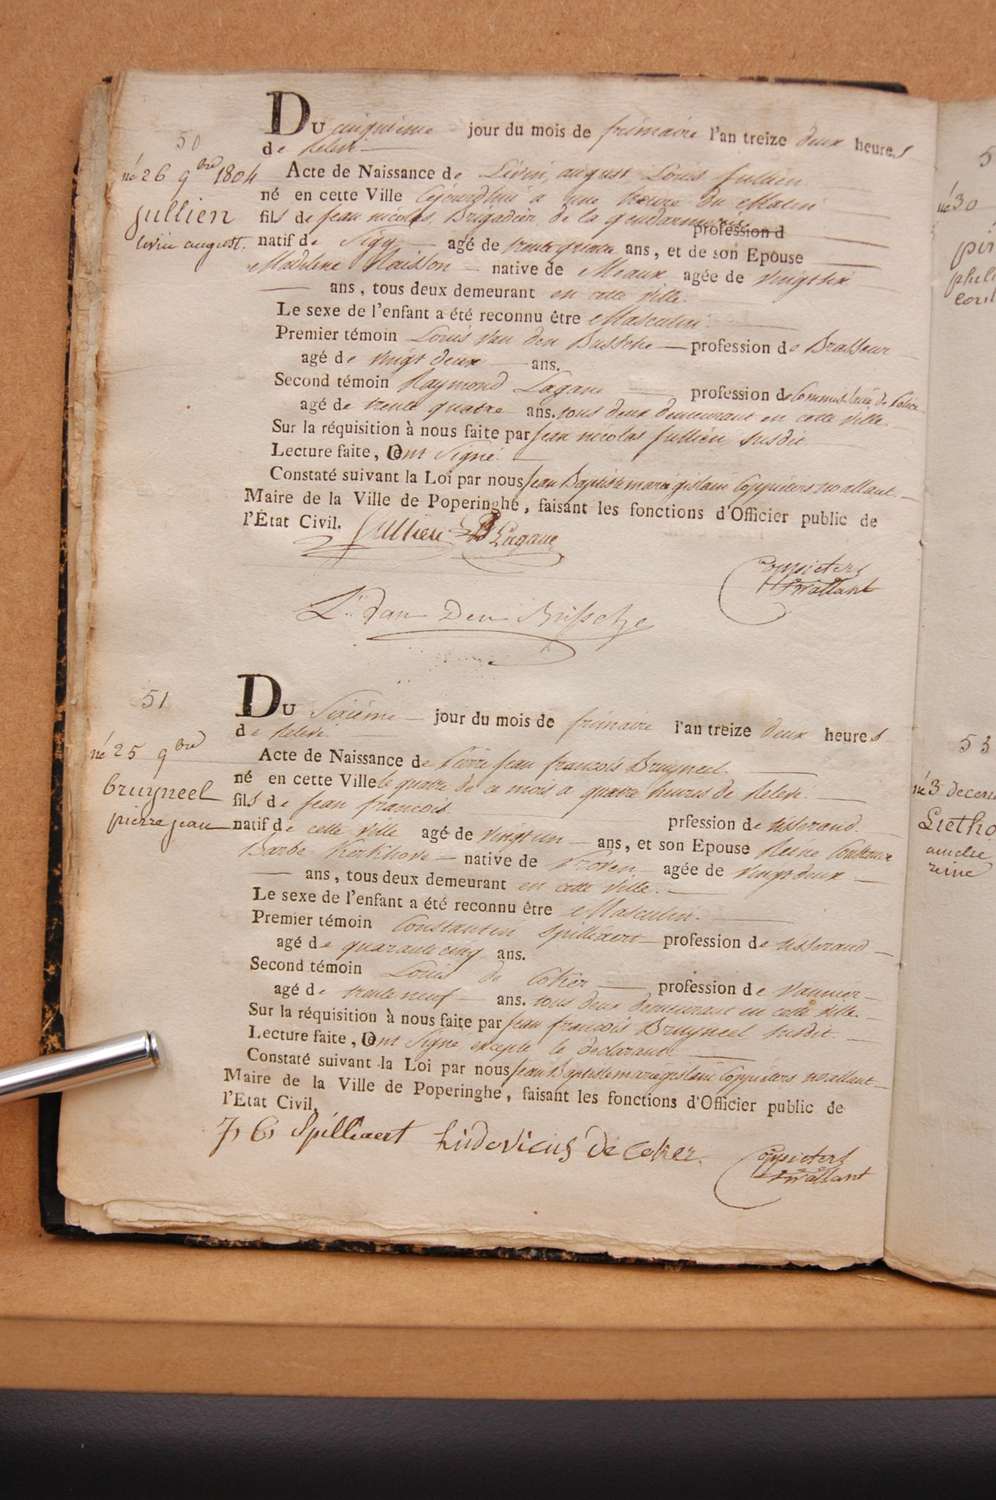 50
né 26 9bre 1804
Jullien
livin august.
Du cinquième jour du mois de frimaire l'an treize deux heures
de relevé
Acte de Naissance de Livin, august Louis Jullien
né en cette Ville cejourdhui a une heure du Matin
fils de jean nicolas, Brigadier de la gendarmerie profession d
natif de agé de trente quatre ans, et de son Epouse
Madelene Maisson native de Meaux agée de vingt six
ans, tous deux demeurant en cette ville.
Le sexe de l'enfant a été reconnu être Masculin.
Premier témoin Louis Van den Bussche profession de Brasseur
agé de vingt deux ans.
Second témoin Raymond Lagane profession de Commissaire de Police
agé de trente quatre ans. tous deux demeurant en cette ville
Sur la réquisition à nous faite par jean nicolas Jullien susdit
Lecture faite, Ont Signé.
Constaté suivant la Loi par nous Jean Baptiste marie gislain Coppieters wallant
Maire de la Ville de Poperinghé, faisant les fonctions d'Officier public de
l'État Civil. Jullien Lagane
Coppieters
wallant
L. Van Den Bussche
51
né 25 9bre
bruyneel
pierre jean
Du Sixième jour du mois de frimaire l'an treize deux heures
de relevé
Acte de Naissance de Pierre jean francois Bruyneel.
né en cette Ville le quatre de ce mois a quatre heures de relevé.
fils de jean francois prfession de tisserand
natif de cette ville agé de vingt un ans, et son Epouse Reine Constance
Barbe Kerkhove native de agée de vingt deux
ans, tous deux demeurant en cette ville.
Le sexe de l'enfant a été reconnu être Masculin.
Premier témoin Constantin Spilliaert profession de tisserand
agé de quarante cinq ans.
Second témoin Louis de Coker profession de vannier
agé de trente neuf ans. tous deux demeurant en cette ville.
Sur la réquisition à nous faite par jean francois Bruyneel susdit
Lecture faite, Ont Signé excepté le déclarant
Constaté suivant la Loi par nous Jean Baptiste marie gislain Coppieters wallant
Maire de la Ville de Poperinghé, faisant les fonctions d'Officier public de
l'Etat Civil.
Spilliaert Ludovicus De Coker
Coppieters
wallant
né 30
53
né 3 decem
Lietho
amelie
reine